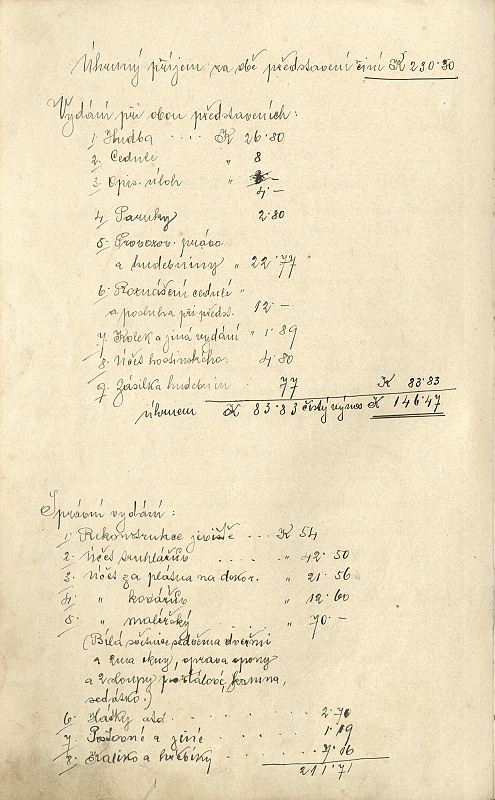 Úhrnný příjem za obě představení činí K 230·30
Vydání při obou představeních:
1. Hudba . . . . K 26·80
2. Cedule " 8
3. Opis. úloh " –
4·–
4. Paruky 2·80
5. Provozov. právo
a hudebniny " 22·77 "
6. Roznášení cedulí "
a posluha při předst. 12·–
7. Kolek a jiná vydání " 1·89
8. Účet hostinského: 4·80
9. Zásilka hudebnin 77 K 83·83
úhrnem K 83·83 čistý výnos K 146·47
Správní vydání:
1. Rekonstrukce jeviště . . . K 54
2. Účet truhlářův . . . . " 42·50
3. Účet za plátna na dekor. " 21·56
4. " kovářův " 12·60
5. " malířský " 70·–
(Bílá světnice se dvěma dveřmi
a 2ma okny, oprava opony
a 2 sloupy portálové, farmina,
sedátko.)
6. Háčky atd. . . . . . 2·70
7. Poštovné a jiné . . . . 1·19
8. Kaliko a hřebíky . . . . 7·16
211·71